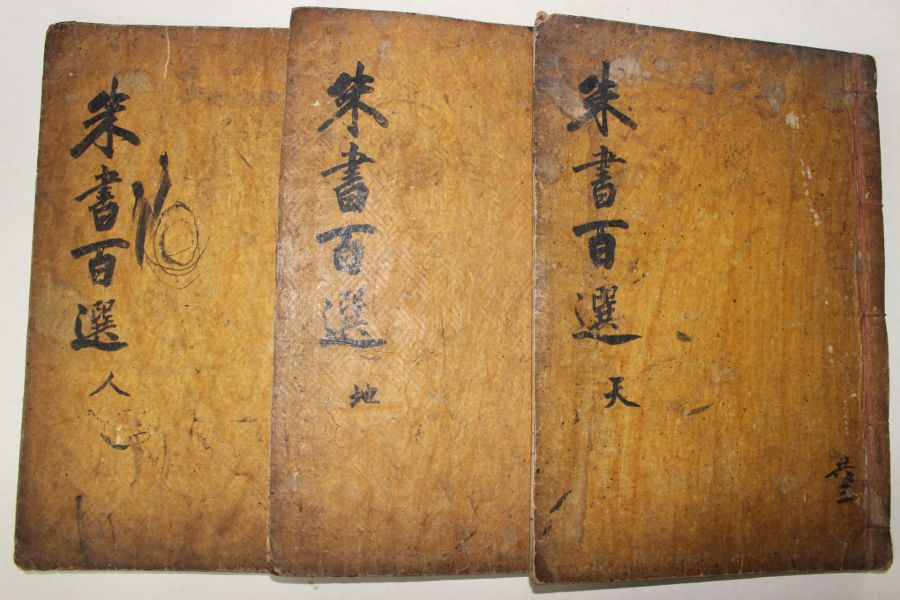 朱書百選
天
共三
朱書百選
地
朱書百選
人